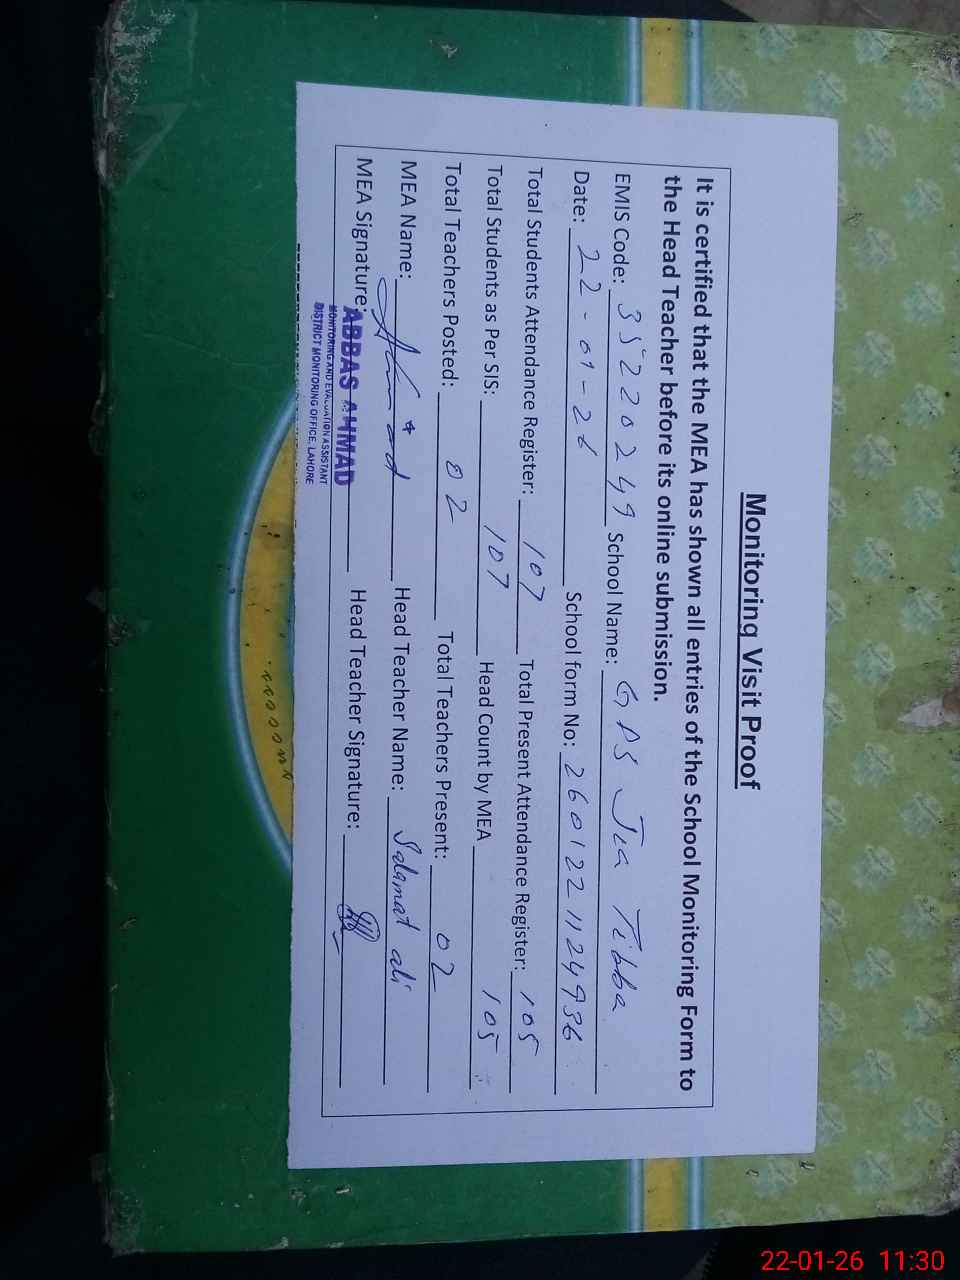 Monitoring Visit Proof
It is certified that the MEA has shown all entries of the School Monitoring Form to
the Head Teacher before its online submission.
EMIS Code: 35220249 School Name: GPS Jia Tibba
Date: 22-01-26 School form No: 2601221124936
Total Students Attendance Register: 107 Total Present Attendance Register: 105
Total Students as Per SIS: 107 Head Count by MEA 105
Total Teachers Posted: 02 Total Teachers Present: 02
MEA Name: Ahmad Head Teacher Name: Salamat ali
MEA Signature: Head Teacher Signature:
ABBAS AHMAD
MONITORING AND EVALUATION ASSISTANT
DISTRICT MONITORING OFFICE, LAHORE
22-01-26 11:30